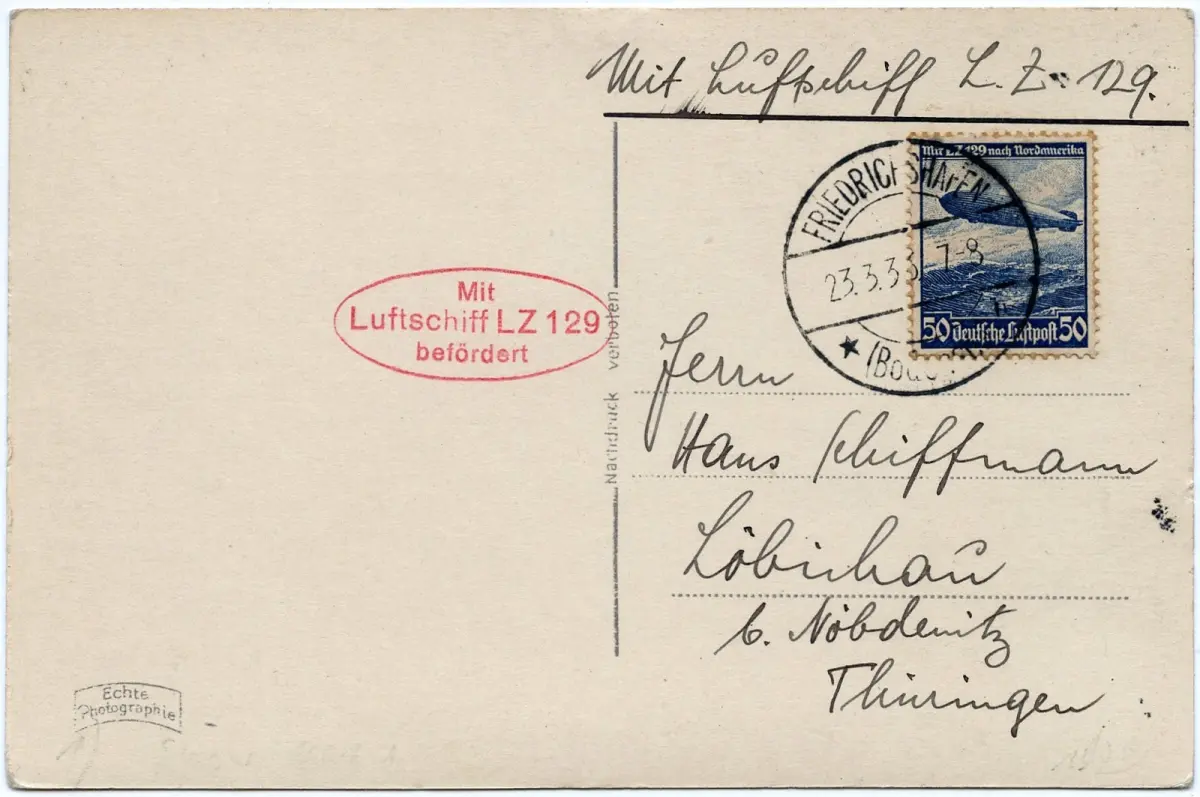 Mit Luftschiff L.Z. 129.
Mit LZ 129 nach Nordamerika
50 Deutsche Luftpost 50
FRIEDRICHSHAFEN
23.3.3 7-8
Mit
Luftschiff LZ 129
befördert
Nachdruck verboten
Herrn
Hans Schiffmann
Löbichau
b. Nöbdenitz
Thüringen
Echte
Photographie